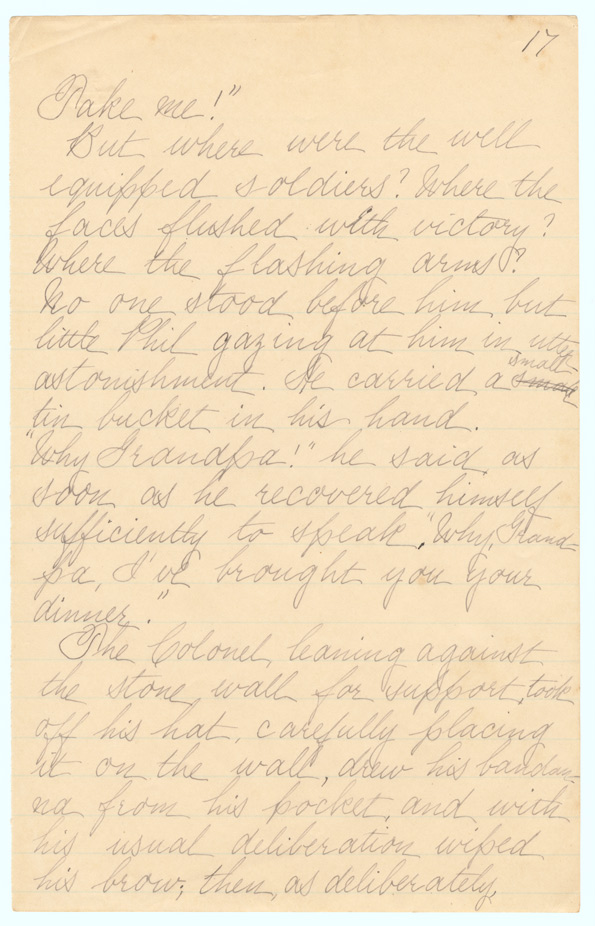 17
Take me!"
But where were the well
equipped soldiers? Where the
faces flushed with victory?
Where the flashing arms?
No one stood before him but
little Phil gazing at him in utter
small
astonishment. He carried a small
tin bucket in his hand.
"Why Grandpa!" he said, as
soon as he recovered himself
sufficiently to speak, "Why, Grand-
pa, I've brought you your
dinner."
The Colonel, leaning against
the stone wall for support, took
off his hat, carefully placing
it on the wall, drew his bandan-
na from his pocket, and with
his usual deliberation wiped
his brow; then, as deliberately,